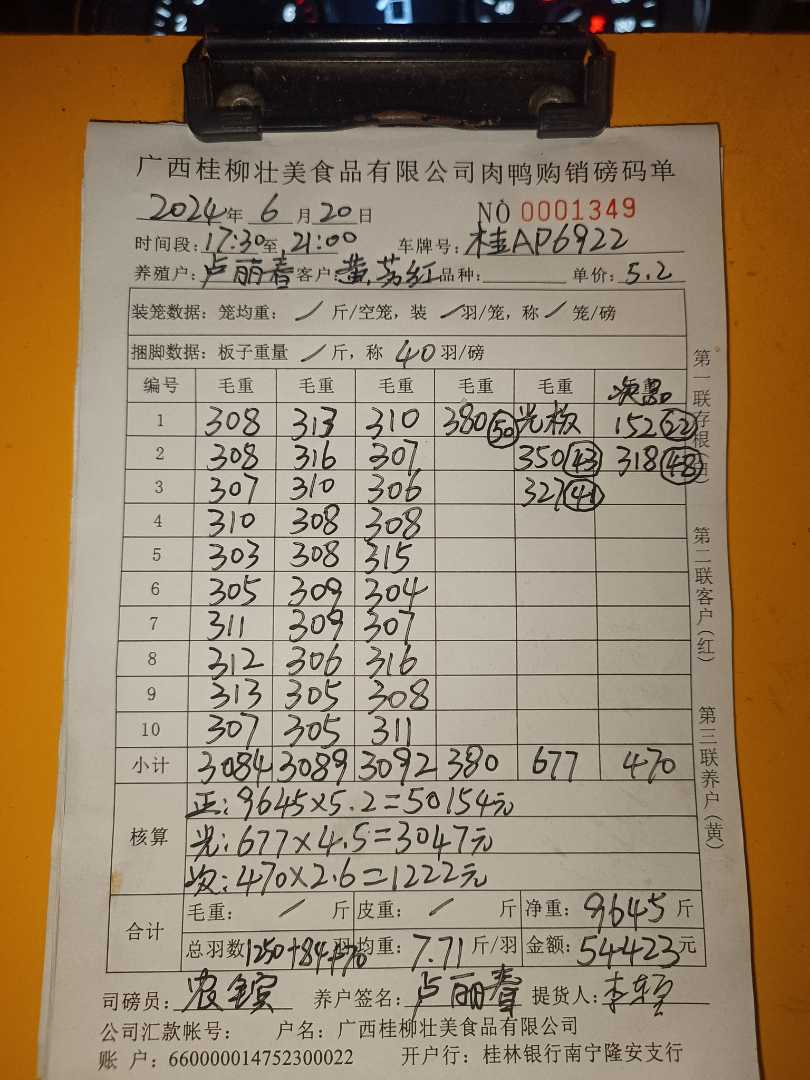 广西桂柳壮美食品有限公司肉鸭购销磅码单
2024年 6 月 20 日 NO 0001349
时间段: 17:30至 21:00 车牌号: 桂AP6922
养殖户: 卢丽春 客户: 黄荔红 品种: 单价: 5.2
装笼数据: 笼均重: / 斤/空笼, 装 / 羽/笼, 称 / 笼/磅
捆脚数据: 板子重量 / 斤, 称 40 羽/磅
编号 毛重 毛重 毛重 毛重 毛重 次品
1 308 313 310 380(50) 光板 152(22)
2 308 316 307 350(43) 318(48)
3 307 310 306 327(41)
4 310 308 308
5 303 308 315
6 305 309 304
7 311 309 307
8 312 306 316
9 313 305 308
10 307 305 311
小计 3084 3089 3092 380 677 470
核算 正: 9645×5.2=50154元
光: 677×4.5=3047元
次: 470×2.6=1222元
合计 毛重: / 斤 皮重: / 斤 净重: 9645 斤
总羽数 1250+84+70 羽 均重: 7.71 斤/羽 金额: 54423 元
司磅员: 养户签名: 卢丽春 提货人:
公司汇款帐号: 户名: 广西桂柳壮美食品有限公司
账 户: 660000014752300022 开户行: 桂林银行南宁隆安支行
第一联存根(白)
第二联客户(红)
第三联养户(黄)